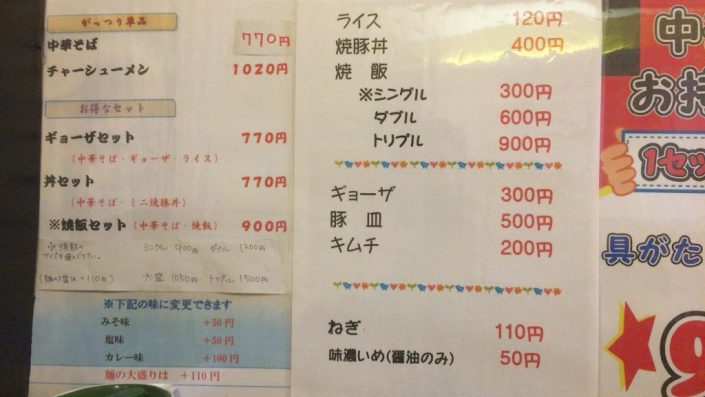 がっつり単品
中華そば 770円
チャーシューメン 1020円
お得なセット
ギョーザセット 770円
(中華そば・ギョーザ・ライス)
丼セット 770円
(中華そば・ミニ焼豚丼)
※焼飯セット (中華そば・焼飯) 900円
※焼飯の シングル 900円 ダブル 1200円
大盛 1050円 トリプル 1500円
※下記の味に変更できます
みそ味 +50円
塩味 +50円
カレー味 +100円
麺の大盛りは +110円
ライス 120円
焼豚丼 400円
焼飯
※シングル 300円
ダブル 600円
トリプル 900円
ギョーザ 300円
豚皿 500円
キムチ 200円
ねぎ 110円
味濃いめ(醤油のみ) 50円
中
お持
1セッ
具がた
9